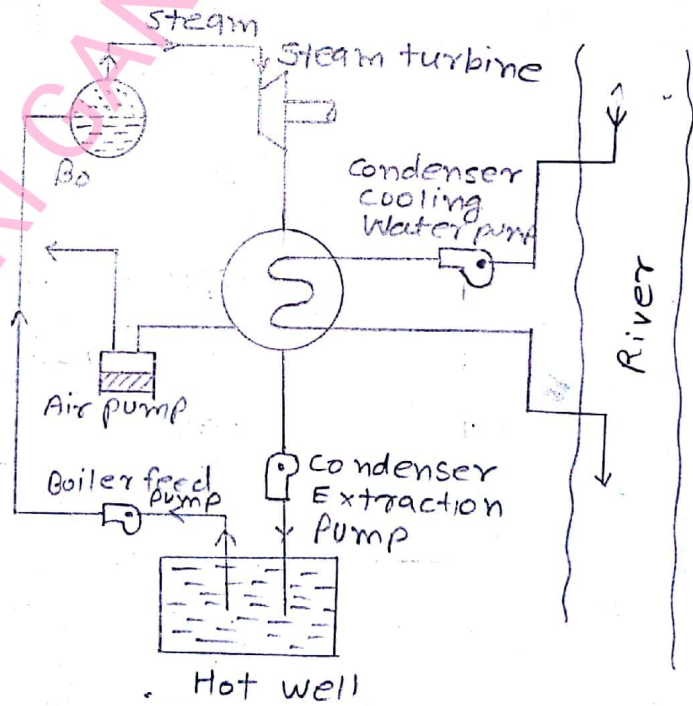 Steam
Steam turbine
Bo
Condenser
Cooling
Water pump
River
Air pump
Boiler feed
pump
Condenser
Extraction
Pump
Hot well